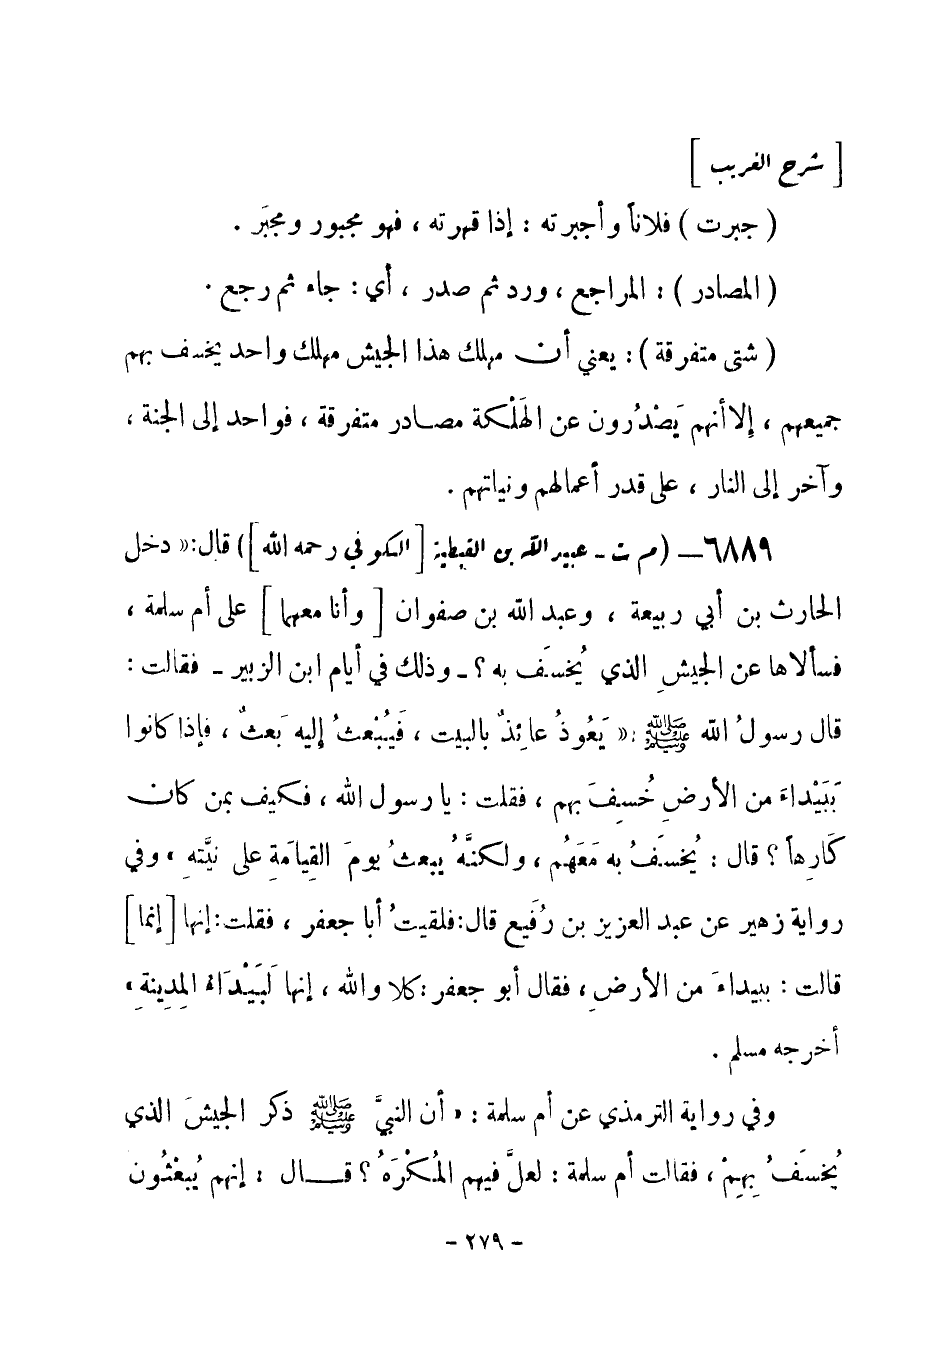 [ شرح الغريب ]
( جبرت ) فلاناً وأجبرته : إذا قهرته ، فهو مجبور ومجبَر .
( المصادر ) : المراجع ، ورد ثم صدر ، أي : جاء ثم رجع .
( شتى متفرقة ) : يعني أن مهلك هذا الجيش مهلك واحد يخسف بهم
جميعهم ، إلا أنهم يَصْدُرون عن الهَلْكة مصادر متفرقة ، فواحد إلى الجنة ،
وآخر إلى النار ، على قدر أعمالهم ونياتهم .
٦٨٨٩ – ( م ت – عبيد الله بن القبطية [ الكوفي رحمه الله ] ) قال : « دخل
الحارث بن أبي ربيعة ، وعبد الله بن صفوان [ وأنا معهما ] على أم سلمة ،
فسألاها عن الجيشِ الذي يُخسَف به ؟ – وذلك في أيام ابن الزبير – فقالت :
قال رسولُ الله ﷺ : « يَعُوذُ عائِذٌ بالبيت ، فَيُبْعثُ إليه بَعثٌ ، فإذا كانوا
بَبَيْداءَ من الأرضِ خُسِفَ بهم ، فقلت : يا رسول الله ، فكيف بمن كان
كَارِهاً ؟ قال : يُخسَفُ به مَعَهُم ، ولكنَّهُ يبعثُ يومَ القِيامَةِ على نيَّتهِ » وفي
رواية زهير عن عبد العزيز بن رُفَيع قال : فلقيتُ أبا جعفر ، فقلت : إنها [ إنما ]
قالت : ببيداءَ من الأرضِ ، فقال أبو جعفر : كلا والله ، إنها لَبَيْدَاءُ المِدِينةِ »
أخرجه مسلم .
وفي رواية الترمذي عن أم سلمة : « أن النبيَّ ﷺ ذكر الجيشَ الذي
يُخسَفُ بِهِمْ ، فقالت أم سلمة : لعلَّ فيهم المُكْرَهُ ؟ قال : إنهم يُبعْثُون
- ٢٧٩ -